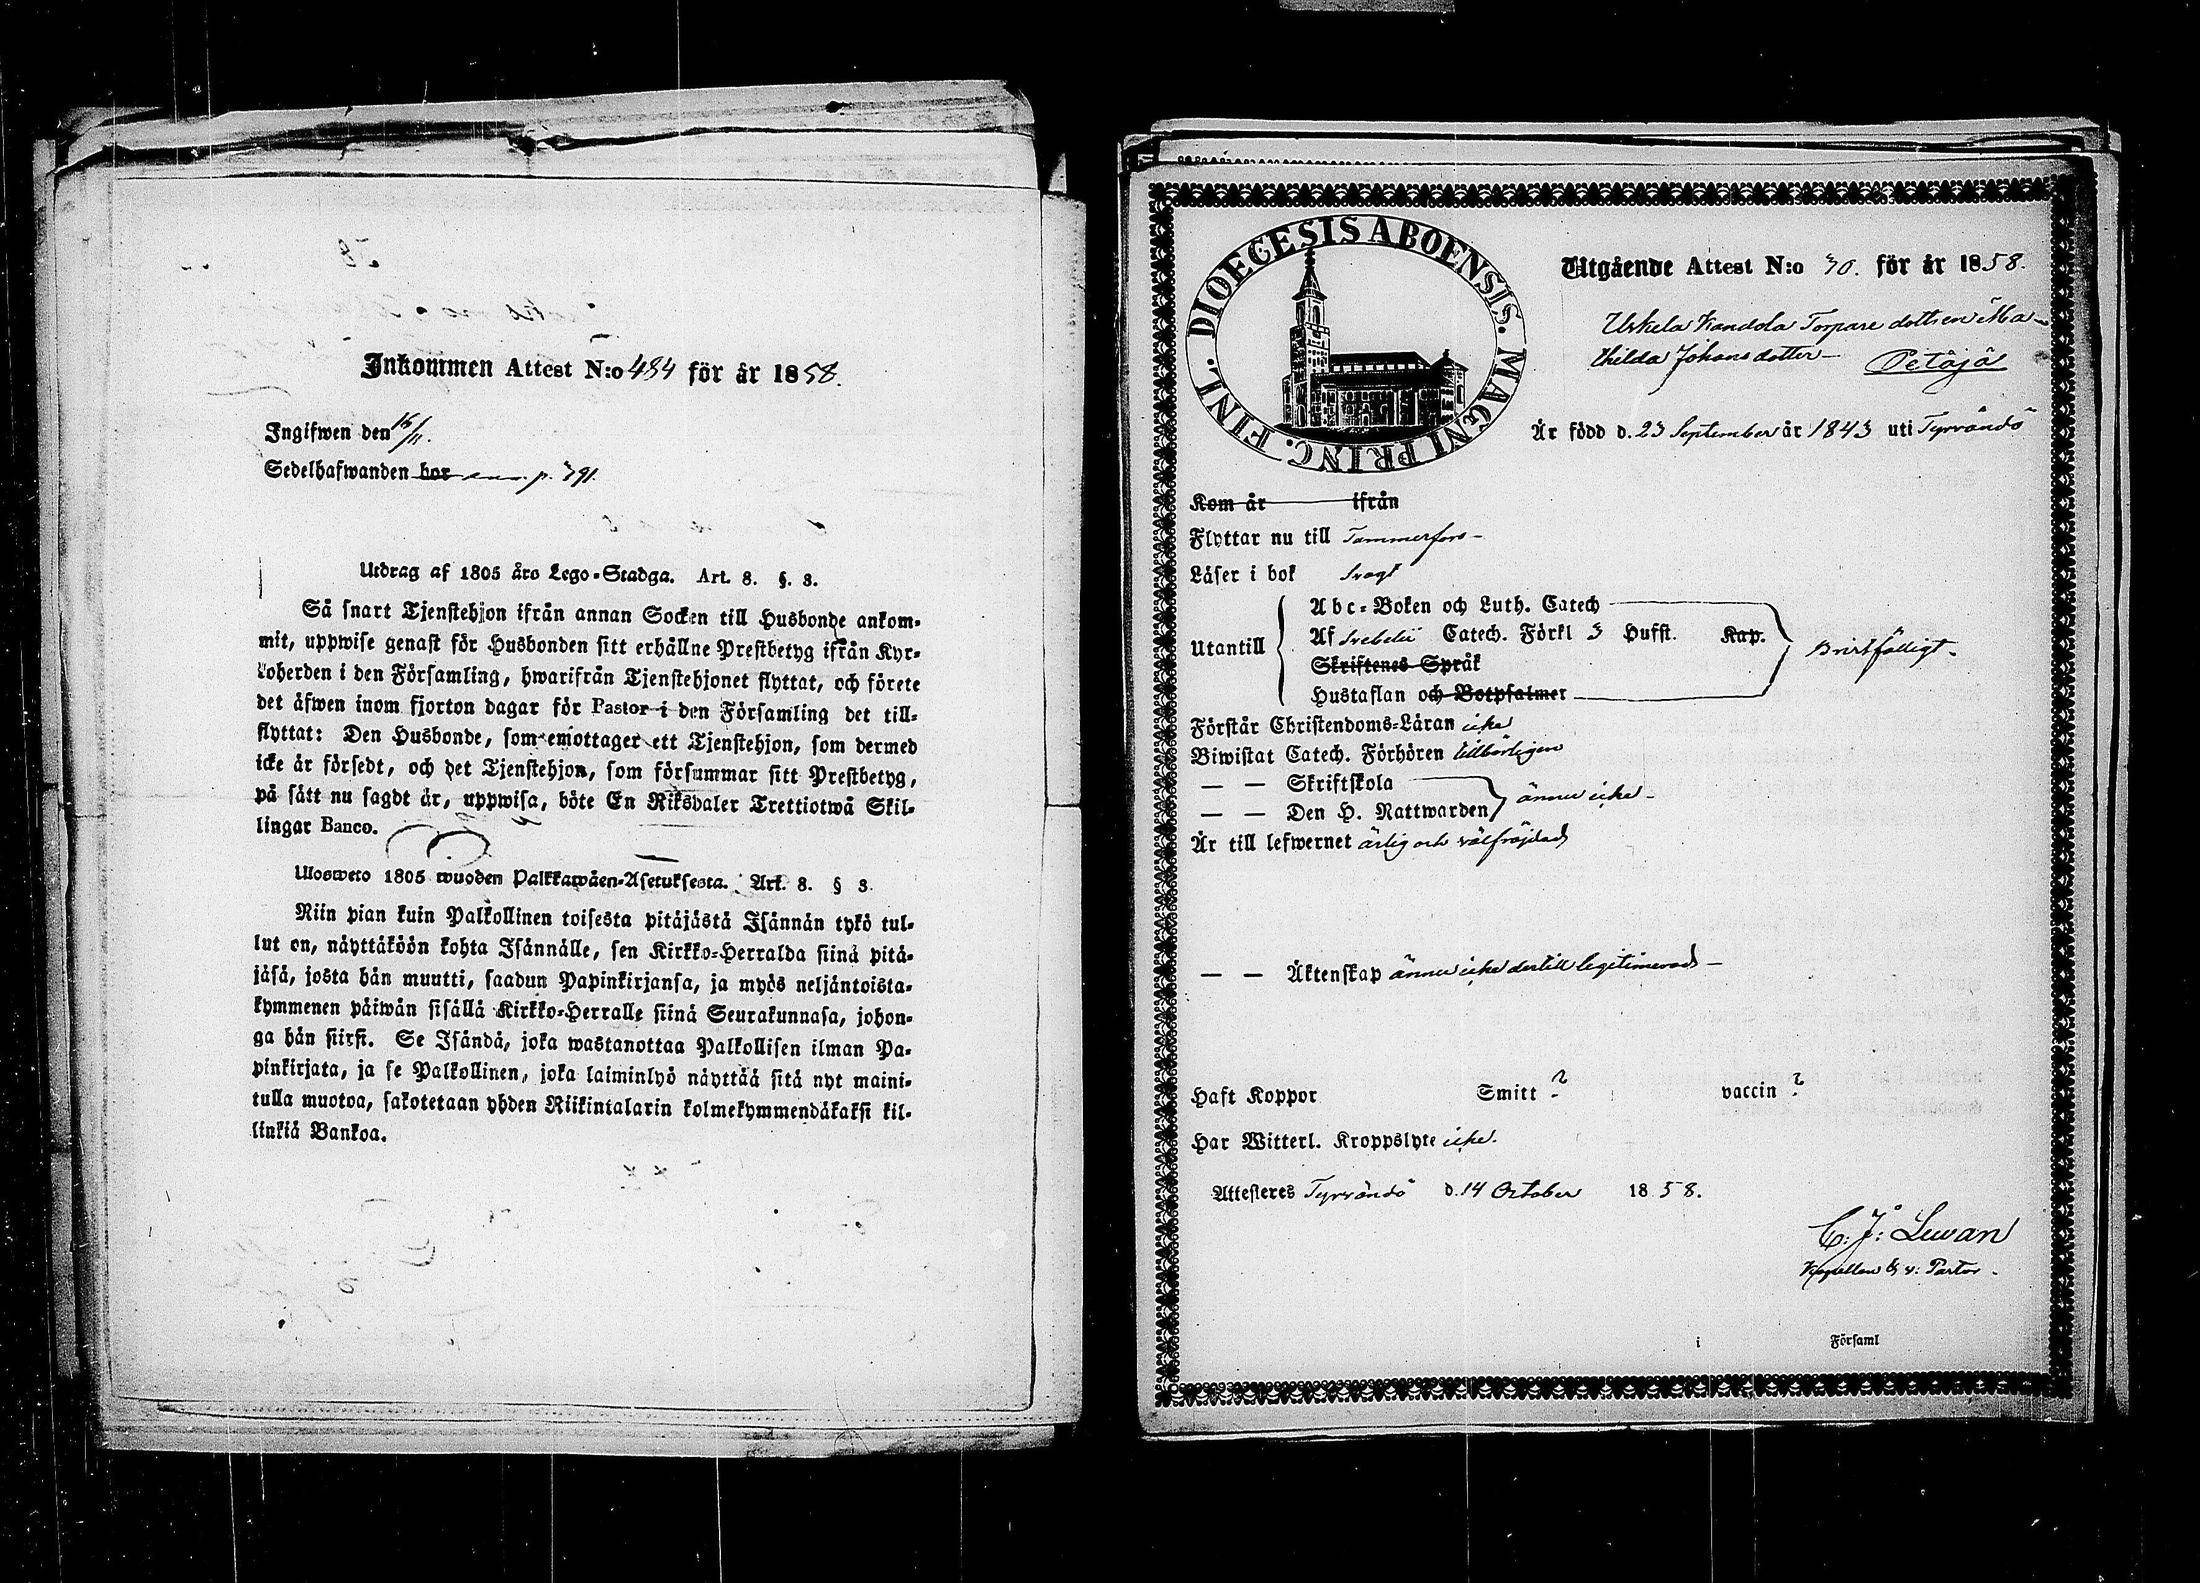 Inkommen Attest N:o 484 för år 1858.
Ingifwen den 16/11.
Sedelhafwanden bor p. 791.
Utdrag af 1805 års Lego-Stadga. Art. 8. §. 3.
Så snart Tjenstehjon ifrån annan Socken till Husbonde ankom-
mit, uppwise genast för Husbonden sitt erhållne Prestbetyg ifrån Kyr-
koherden i den Församling, hwarifrån Tjenstehjonet flyttat, och förete
det äfwen inom fjorton dagar för Pastor i den Församling det till-
flyttat: Den Husbonde, som emottager ett Tjenstehjon, som dermed
icke är försedt, och det Tjenstehjon, som försummar sitt Prestbetyg,
på sätt nu sagdt är, uppwisa, böte En Riksdaler Trettiotwå Skil-
lingar Banco.
Ulosweto 1805 wuoden Palkkawäen-Asetuksesta. Art. 8. § 3.
Niin pian kuin Palkollinen toisesta pitäjästä Isännän tykö tul-
lut on, näyttäköön kohta Isännälle, sen Kirkko-Herralda siinä pitä-
jäsä, josta hän muutti, saadun Papinkirjansa, ja myös neljäntoista-
kymmenen päiwän sisällä Kirkko-Herralle siinä Seurakunnasa, johon-
ga hän siirsi. Se Isändä, joka wastanottaa Palkollisen ilman Pa-
pinkirjata, ja se Palkollinen, joka laiminlyö näyttää sitä nyt maini-
tulla muotoa, sakotetaan yhden Riikintalarin kolmekymmendäkaksi kil-
linkiä Bankoa.
DIOECESIS ABOENSIS. MAGNI PRINC. FINL.
Utgående Attest N:o 70. för år 1858.
Uskela Kandola Torpare dottren Ma-
thilda Johansdotter - Petäjä
Är född d. 23 September år 1843 uti Tyrvändö
Kom år ifrån
Flyttar nu till Tammerfors -
Läser i bok Svagt
Utantill
Abc-Boken och Luth. Catech
Af Svebelii Catech. Förkl 3 Hufst. Kap.
Skriftenes Språk
Hustaflan och Botpsalmer
Bristfälligt -
Förstår Christendoms-Läran icke
Biwistat Catech. Förhören tillbörligen
— — Skriftskola
— — Den H. Nattwarden ännu icke -
Är till lefwernet ärlig och välfräjdad
— — Äktenskap ännu icke dertill legitimerad -
Haft Koppor Smitt ? vaccin ?
Har Witterl. Kroppslyte icke.
Attesteres Tyrvändö d. 14 October 1858.
C. J: Lewan
Kapellan & v: Pastor -
i Församl